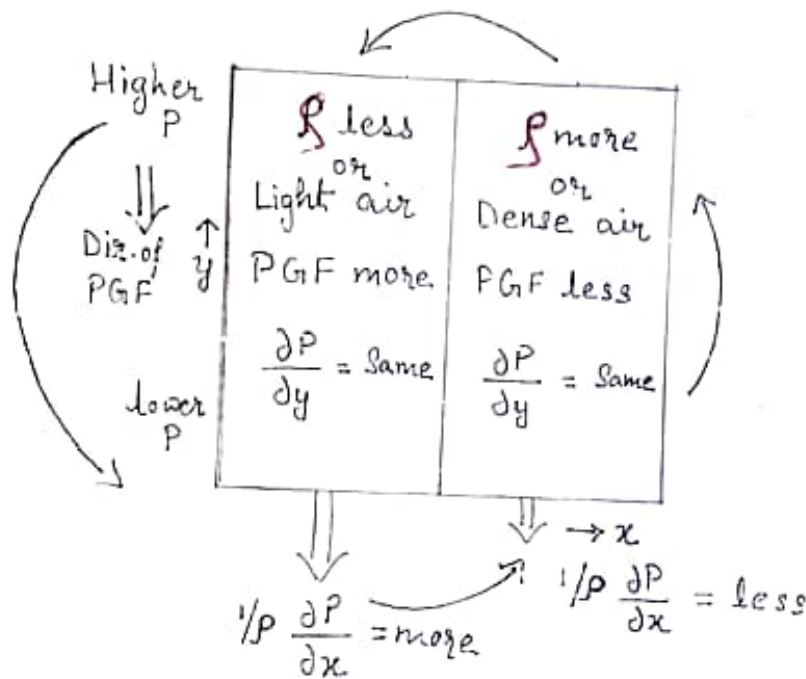 Higher
P
Dir. of
PGF
y
lower
P
ρ less
or
Light air
PGF more
∂P/∂y = Same
ρ more
or
Dense air
PGF less
∂P/∂y = Same
→ x
1/ρ ∂P/∂x = more
1/ρ ∂P/∂x = less